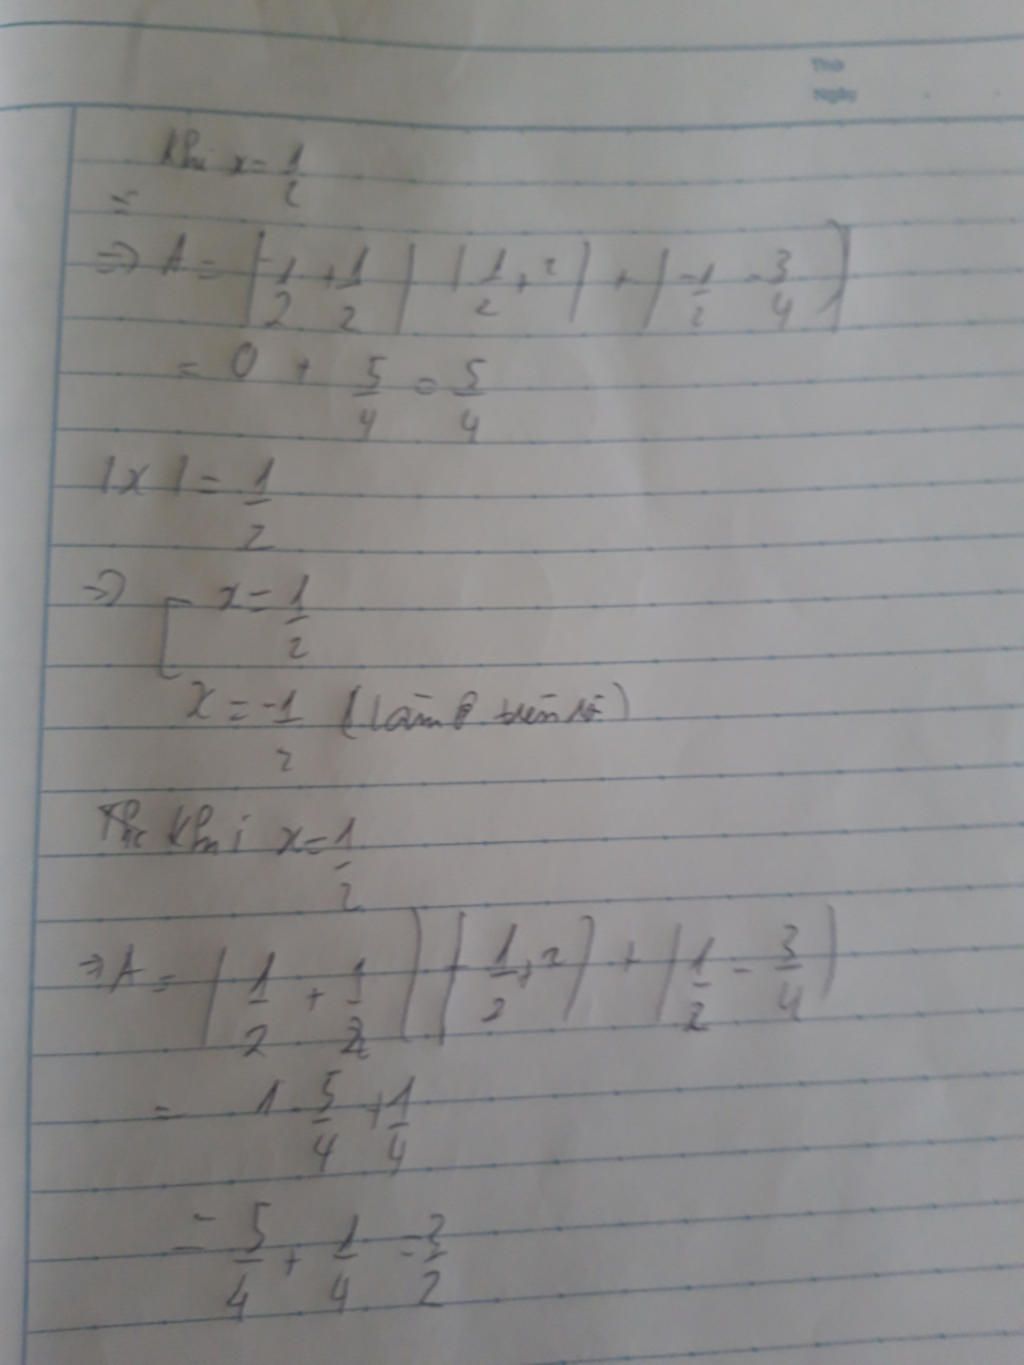 Thứ
Ngày
Khi x = 1/2
=
=> A = |-1/2 + 1/2| |1/2 + 2| + |-1/2 - 3/4|
= 0 + 5/4 = 5/4
|x| = 1/2
=> [ x = 1/2
x = -1/2 (làm trên)
khi x = 1/2
=> A = |1/2 + 1/2| |-1/2 + 2| + |1/2 - 3/4|
= 1 . 5/4 + 1/4
= 5/4 + 1/4 = 3/2